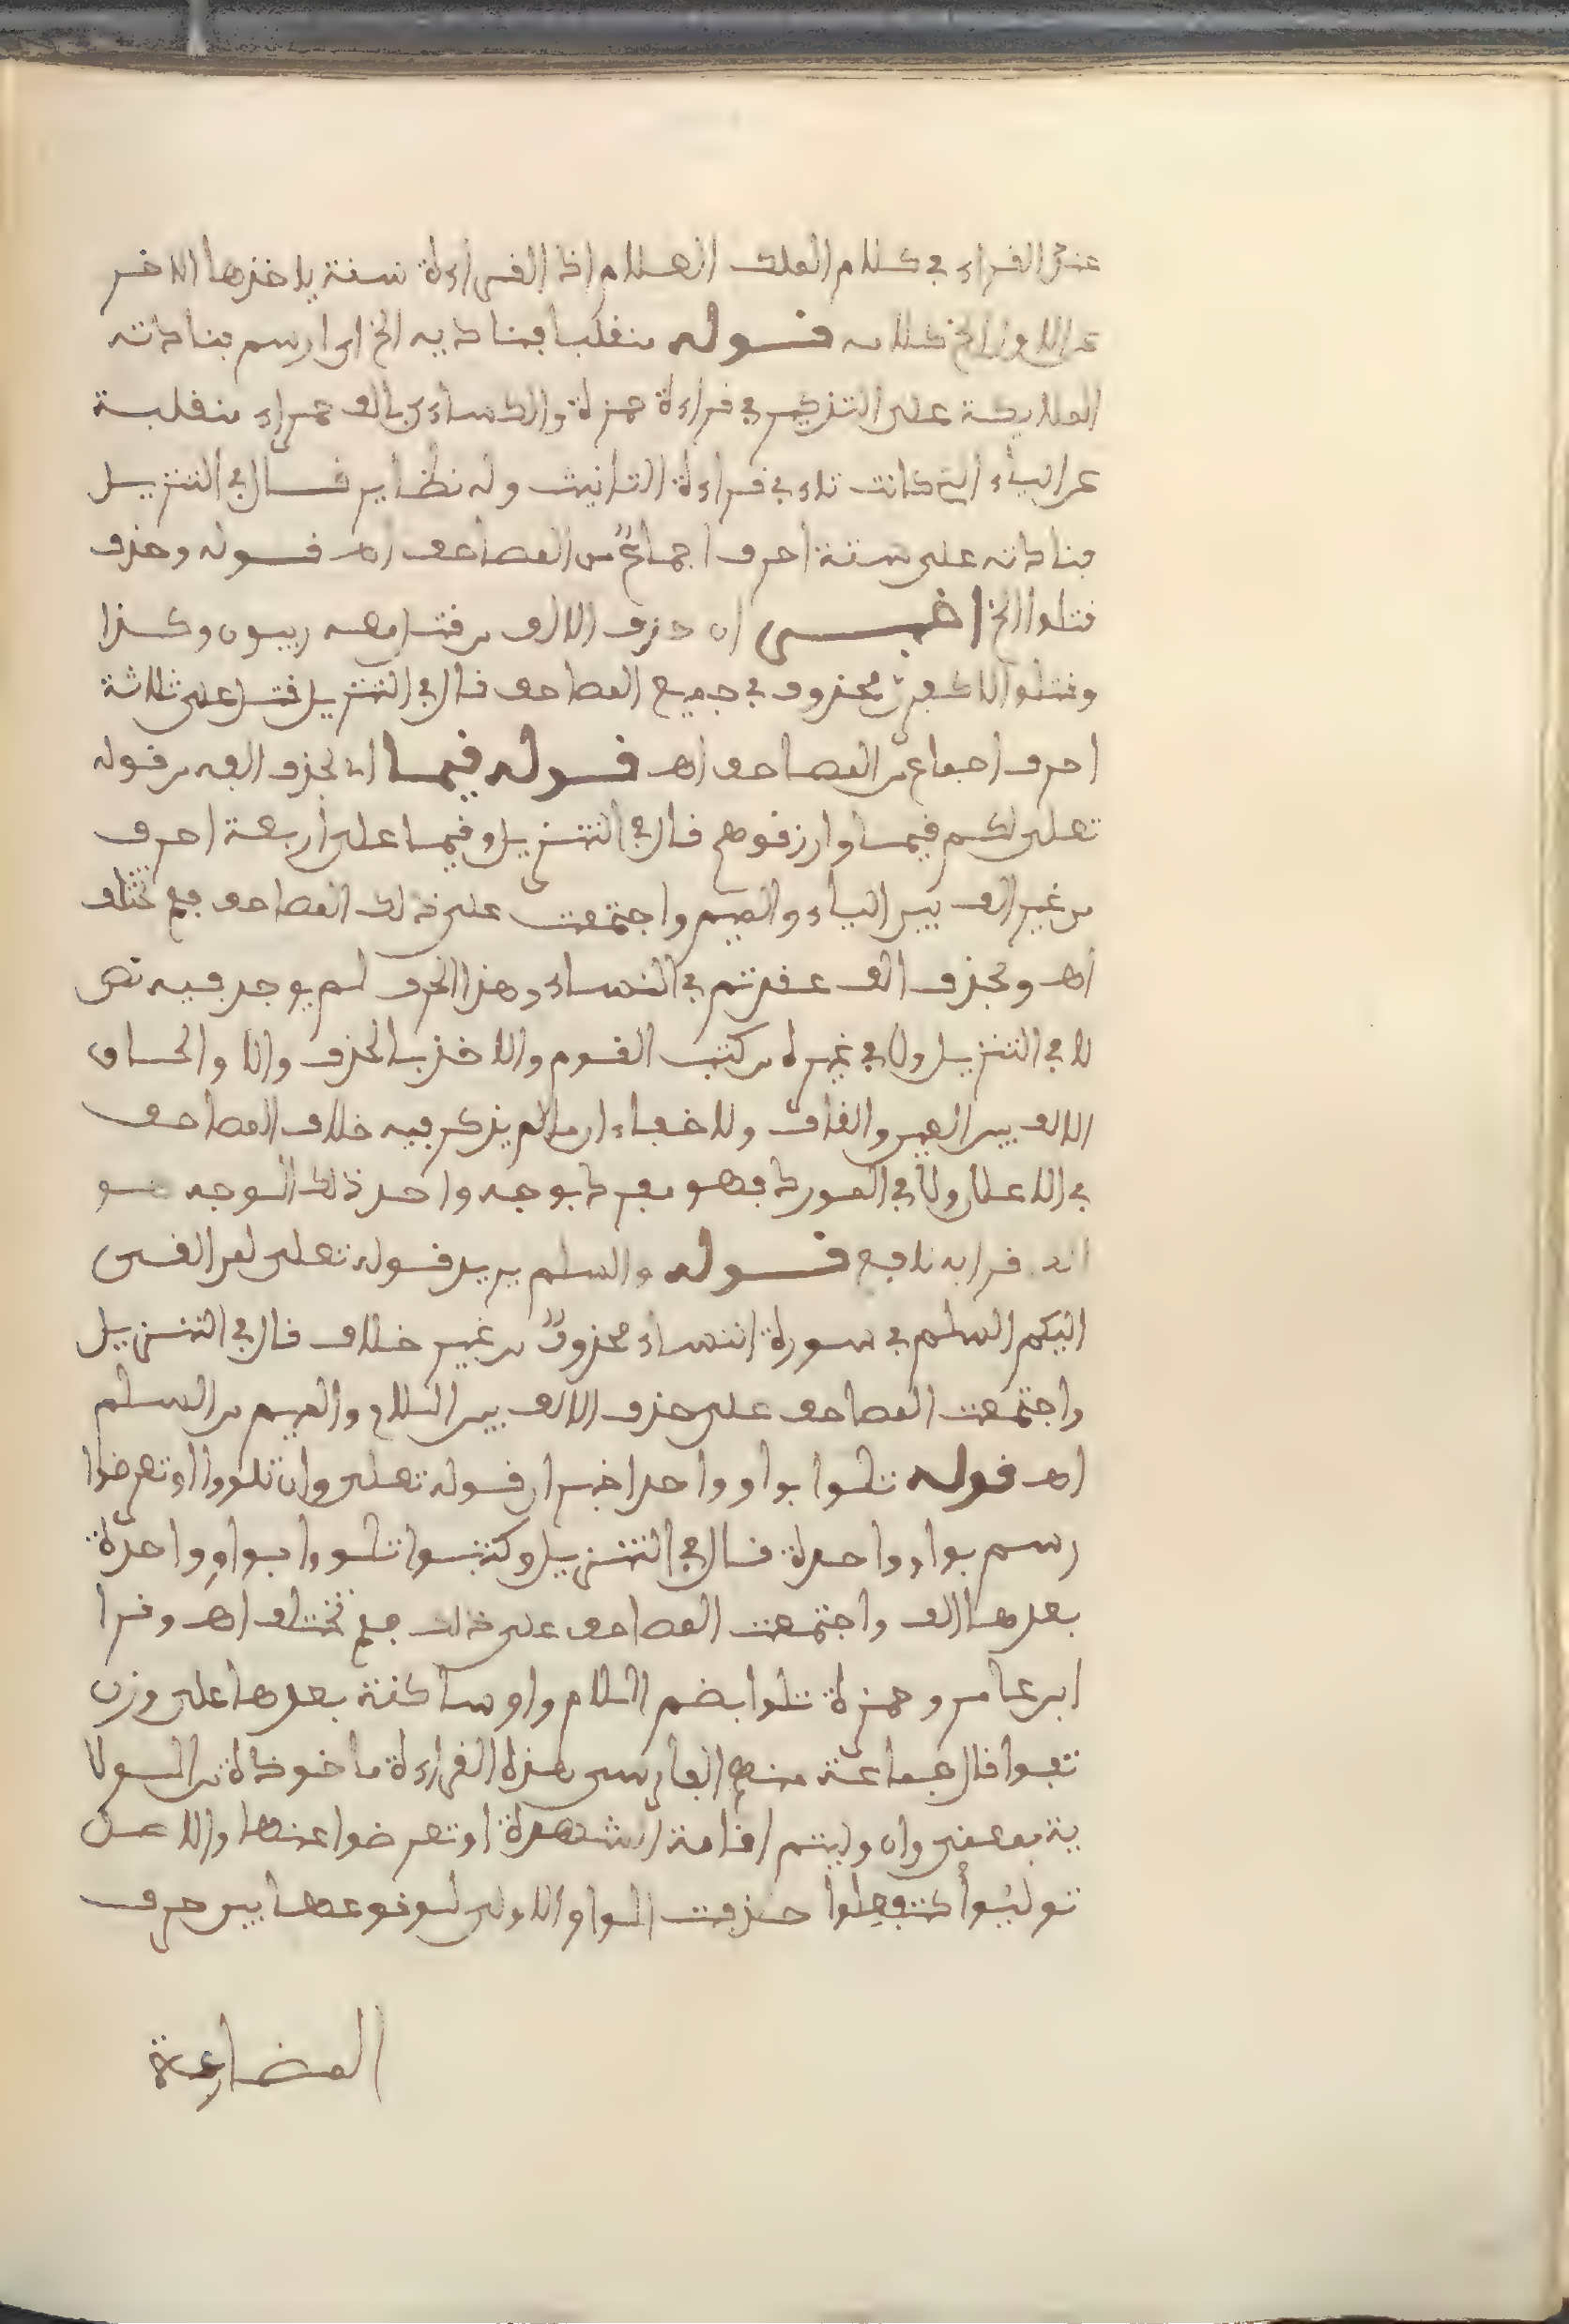 عند القراء في كلام الملك العلام اذ القراءة سنة ياخذها الاخر
عن الاول انتهى كلامه قوله منقلبا فناديه الخ اي ارسم فنادته
الملايكة على التذكير في قراءة حمزة والكساءي بالف حمراء منقلبة
عن الياء التي كانت تاء في قراءة التانيث وله نظاير قال في التنزيل
فنادته على ستة احرف اجماع من المصاحف اهـ قوله وحذف
قتلوا الخ اخبر ان حذف الالف من قتل معه ربيون وكذا
وقتلوا لاكفرن محذوف في جميع المصاحف قال في التنزيل قتل على ثلاثة
احرف اجماع من المصاحف اهـ قوله قيما اي بحذف الفه من قوله
تعلى لكم قيما وارزقوهم قال في التنزيل وقيما على اربعة احرف
من غير الف بين الياء والميم واجتمعت على ذلك المصاحف فلم تختلف
اهـ وبحذف الف عقدتم في النساء وهذا الحرف لم يوجد فيه نص
لا في التنزيل ولا في غيره من كتب القوم والاخذ بالحذف والحاق
الالف بين العين والقاف ولا خفاء ان ما لم يذكر فيه خلاف المصاحف
في الاعلان ولا في المورد فهو مفرد بوجه واحد ذلك الوجه هو
انه قرا به نافع قوله والسلم يريد قوله تعلى لمن القى
اليكم السلم في سورة النساء محذوف من غير خلاف قال في التنزيل
واجتمعت المصاحف على حذف الالف بين اللام والميم من السلم
اهـ قوله تلوا بواو واحد اخبر ان قوله تعلى وان تلووا او تعرضوا
رسم بواو واحدة قال في التنزيل وكتبوا تلووا بواو واحدة
بعدها الف واجتمعت المصاحف على ذلك فلم تختلف اهـ وقرا
ابن عامر وحمزة تلوا بضم اللام وواو ساكنة بعدها على وزن
تفوا قال جماعة منهم الفارسي هذه القراءة ماخوذة من الولا
ية بمعنى وان وليتم اقامة الشهدة او تعرضوا عنها والاصل
توليوا كتفعلوا حذفت الواو الاولى لوقوعها بين حرف
المضارعة